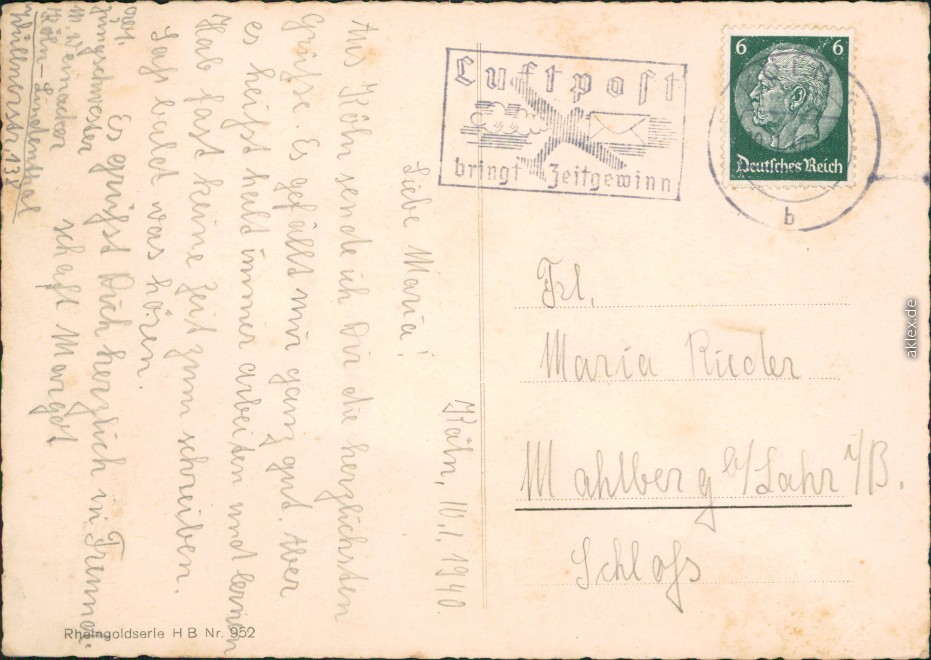 Köln, 10.1.1940.
Liebe Maria!
Aus Köln sende ich Dir die herzlichsten
Grüsse. Es gefällt mir ganz gut. Aber
es heißt halt immer arbeiten und lernen
Hab fast keine Zeit zum schreiben.
Laß bald was hören.
Es grüsst Dich herzlich in Freund-
schaft Margot
Adr.
Jungschwester
M. Weinacker
Köln-Lindenthal
Luftpost
bringt Zeitgewinn
6 6
Deutsches Reich
b
Frl.
Maria Rieder
Mahlberg b/Lahr i/B.
Schloß
Rheingoldserie H B Nr. 952
aklex.de